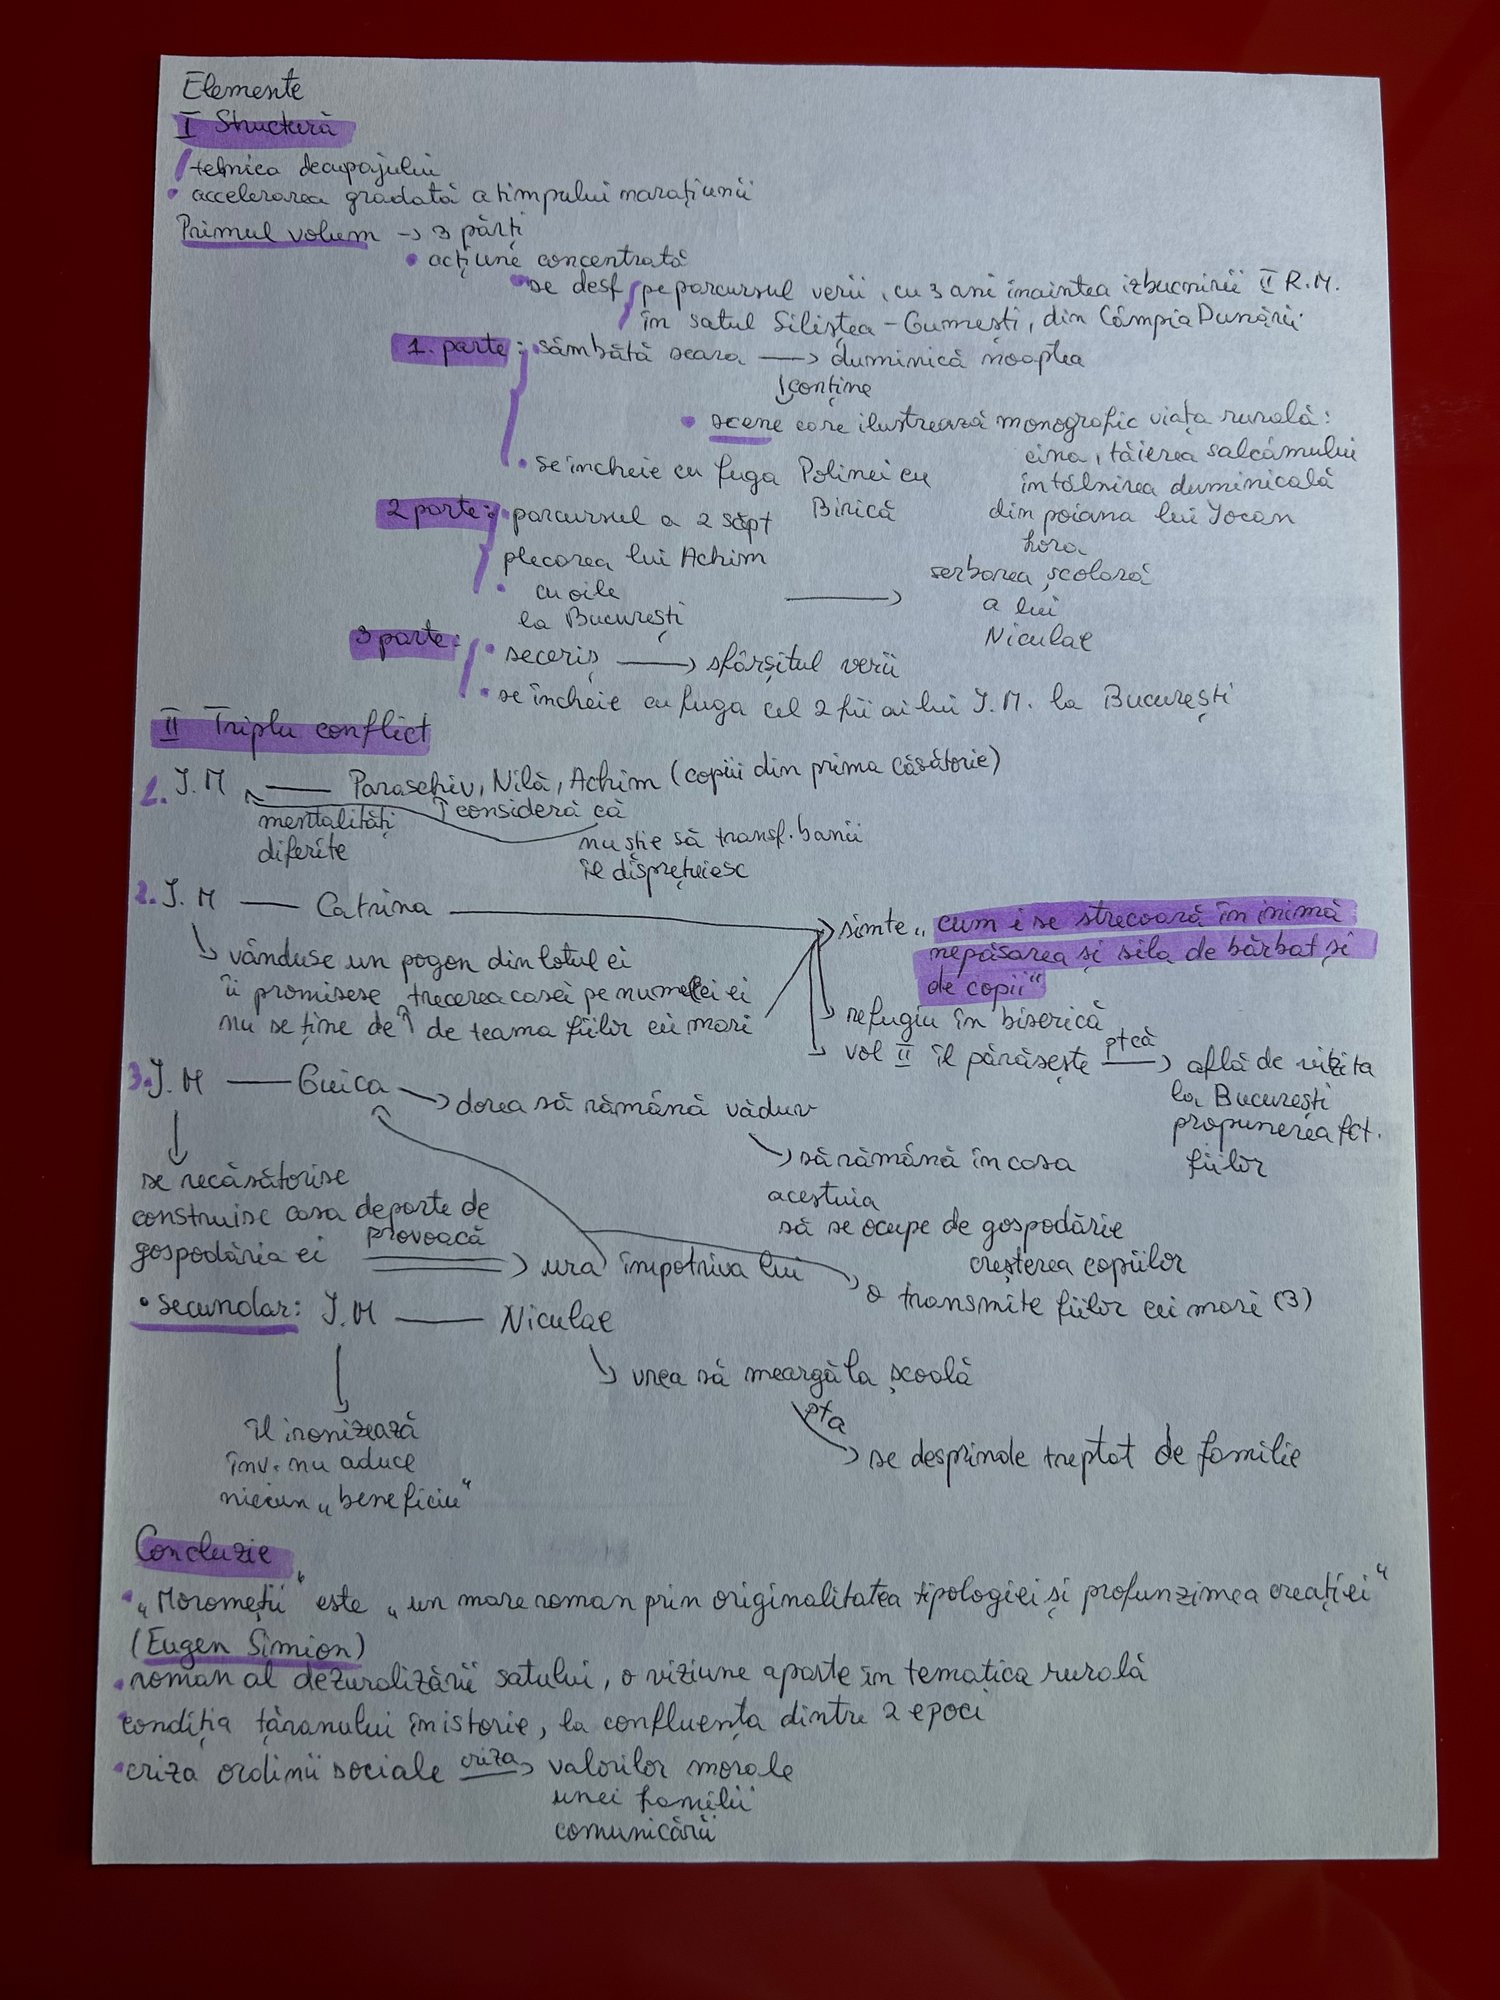 Elemente
I Structură
tehnica decupajului
• accelerarea gradată a timpului narațiunii
Primul volum -> 3 părți
• acțiune concentrată
• se desf pe parcursul verii, cu 3 ani înaintea izbucnirii II R.M.
în satul Siliștea - Gumești, din Câmpia Dunării
1. parte: • sâmbătă seara -> duminică noaptea
conține
• scene care ilustrează monografic viața rurală:
cina, tăierea salcâmului
• se încheie cu fuga Polinei cu
Birică
întâlnirea duminicală
din poiana lui Iocan
hora
2 parte: • parcursul a 2 săpt
plecarea lui Achim
• cu oile
la București ->
serbarea școlară
a lui
Niculae
3 parte: • seceriș -> sfârșitul verii
• se încheie cu fuga cel 2 fii ai lui I.M. la București
II Triplu conflict
1. I.M — Paraschiv, Nilă, Achim (copiii din prima căsătorie)
mentalități
diferite
consideră că
nu știe să transf. banii
îl disprețuiesc
2. I.M — Catrina -> simte „cum i se strecoară în inimă
nepăsarea și sila de bărbat și
de copii"
vânduse un pogon din lotul ei
îi promisese trecerea casei pe numele ei
nu se ține de de teama fiilor cei mari
refugiu în biserică
vol II îl părăsește pt că -> află de vizita
la București
propunerea fct.
fiilor
3. I.M — Guica -> dorea să rămână văduv
să rămână în casa
acestuia
să se ocupe de gospodărie
creșterea copiilor
se recăsătorise
construise casa departe de
gospodăria ei provoacă -> ura împotriva lui
o transmite fiilor cei mari (3)
• secundar: I.M — Niculae
vrea să meargă la școală
pt a
se desprinde treptat de familie
îl ironizează
înv. nu aduce
niciun „beneficiu"
Concluzie
• „Moromeții" este „un mare roman prin originalitatea tipologiei și profunzimea creației"
(Eugen Simion)
• roman al dezruralizării satului, o viziune aparte în tematica rurală
• condiția țăranului în istorie, la confluența dintre 2 epoci
• criza ordinii sociale criza -> valorilor morale
unei familii
comunicării